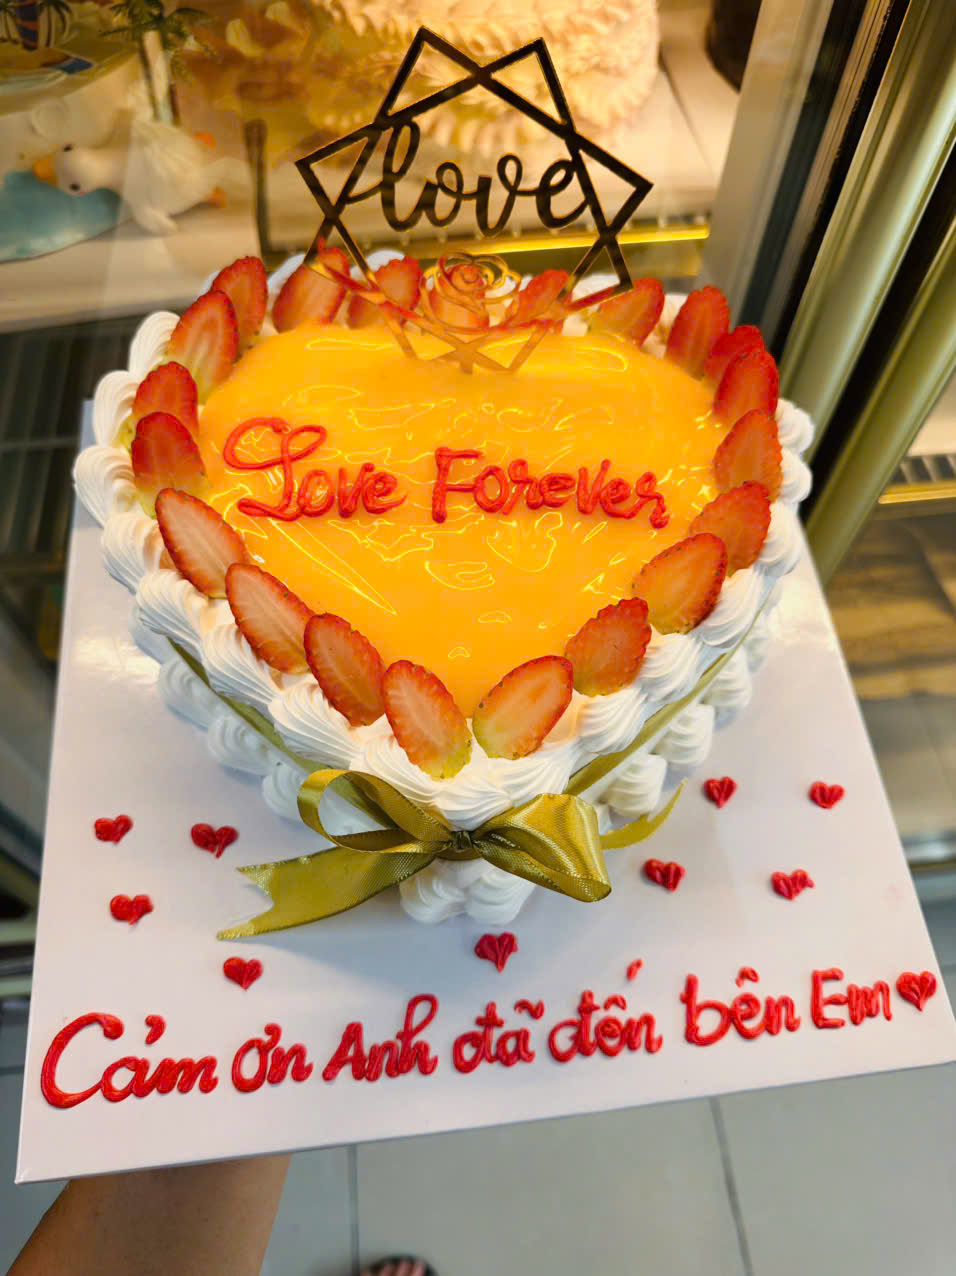 love
Love Forever
Cảm Ơn Anh đã đến bên Em